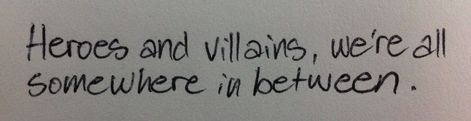 Heroes and villains, we're all
somewhere in between.